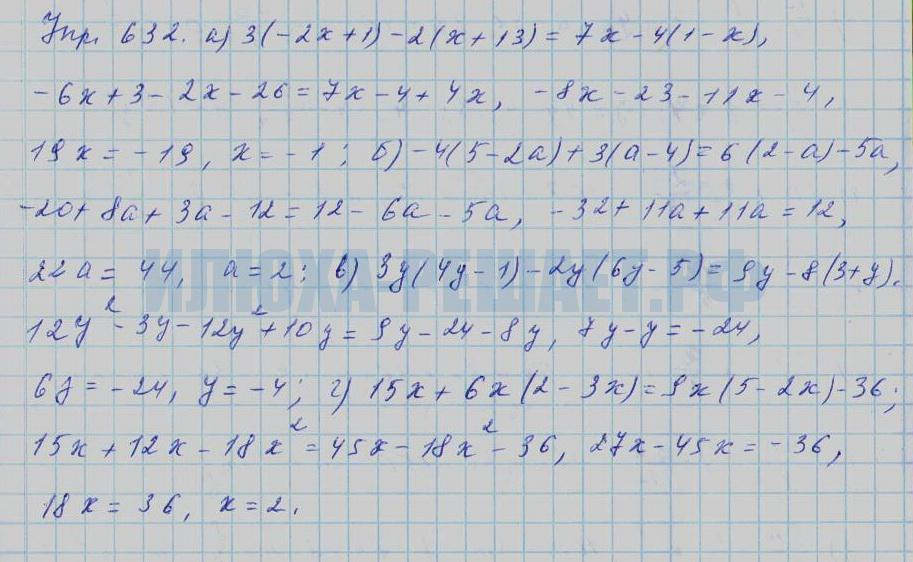 Упр. 632. а) 3(-2x+1)-2(x+13)=7x-4(1-x),
-6x+3-2x-26=7x-4+4x, -8x-23-11x-4,
19x=-19, x=-1; б) -4(5-2a)+3(a-4)=6(2-a)-5a,
-20+8a+3a-12=12-6a-5a, -32+11a+11a=12,
22a=44, a=2; в) 3y(4y-1)-2y(6y-5)=9y-8(3+y).
12y²-3y-12y²+10y=9y-24-8y, 7y-y=-24,
6y=-24, y=-4; г) 15x+6x(2-3x)=9x(5-2x)-36;
15x+12x-18x²=45x-18x²-36, 27x-45x=-36,
18x=36, x=2.
ИЛЮХА-РЕШАЕТ.РФ